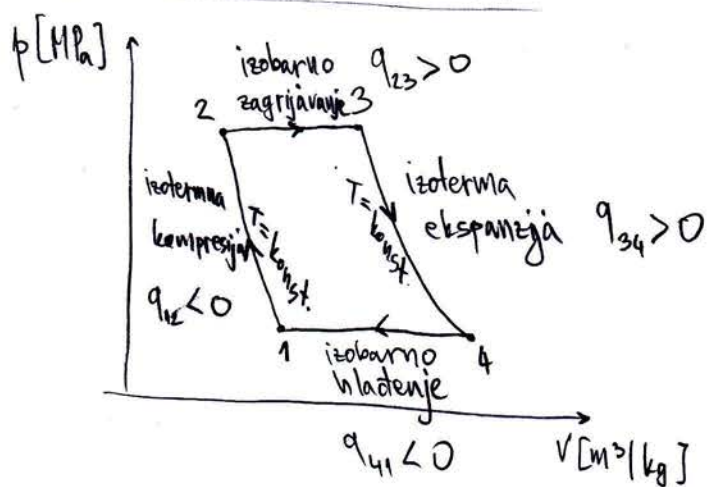 p [MPa]
izobarno
zagrijavanje
q₂₃ > 0
2
3
izotermna
kompresija
T = konst.
q₁₂ < 0
T = konst.
izoterma
ekspanzija
q₃₄ > 0
1
4
izobarno
hlađenje
q₄₁ < 0
V [m³/kg]